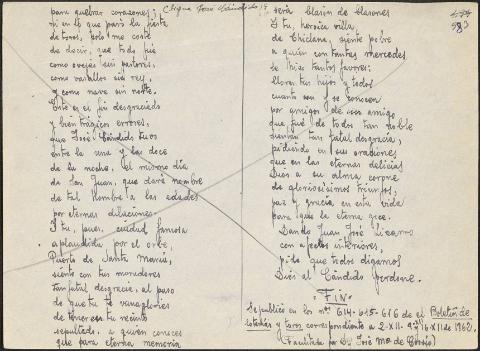 Elegia José Cándido
para quebrar corazones;
ni en lo que paró la fiesta
de toros, solo me resta
de decir, que todo fué
como ovejas sin pastores,
como vasallos sin rey,
y como nave sin norte.
Este es el fin desgraciado
y bien trágicos errores,
que José Cándido tuvo
entre la una y las doce
de su noche, el mismo día
de San Juan, que dará nombre
de tal Hombre a las edades
por eternas dilaciones.
Y tu, pues, ciudad famosa
aplaudida por el orbe,
Puerto de Santa María,
siente con tus moradores
tan fatal desgracia, al paso
de que tu te vanaglories
de tener en tu recinto
sepultado, a quien conoces
que para eterna memoria
será blasón de blasones
Y tu, heroica villa
de Chiclana, siente pobre
a quien con tantas mercedes
te hizo tantos favores;
lloren tus hijos y todos
cuanto son y se conocen
por amigos de ese amigo
que fué de todos tan noble
sientan tan fatal desgracia,
pidiendo en sus oraciones
que en las eternas delicias
Dios a su alma corone
de gloriosísimos triunfos,
paz y gracia en esta vida
para que la eterna goce.
Dando Juan José Lizano
con afectos interiores,
pide que todos digamos
Dios al Cándido perdone.
"FIN"
Se publicó en los nos 614-615-616 de el Boletín de
loterías y toros correspondiente a 2-XII- 16-XII de 1962,
(Facilitada por D. José Mª de Cossío)